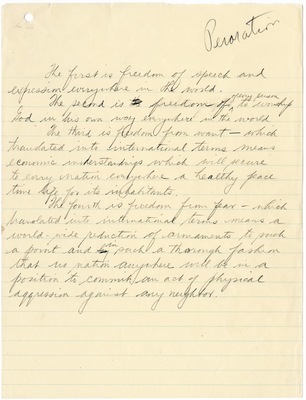 Peroration
The first is freedom of speech and
expression everywhere in the world.
The second is freedom of every person to worship
God in his own way everywhere in the world
The third is freedom from want – which
translated into international terms means
economic understandings which will secure
to every nation everywhere a healthy peace
time life for its inhabitants.
The fourth is freedom from fear – which
translated into international terms means a
world-wide reduction of armaments to such
a point and in such a thorough fashion
that no nation anywhere will be in a
position to commit an act of physical
aggression against any neighbor.